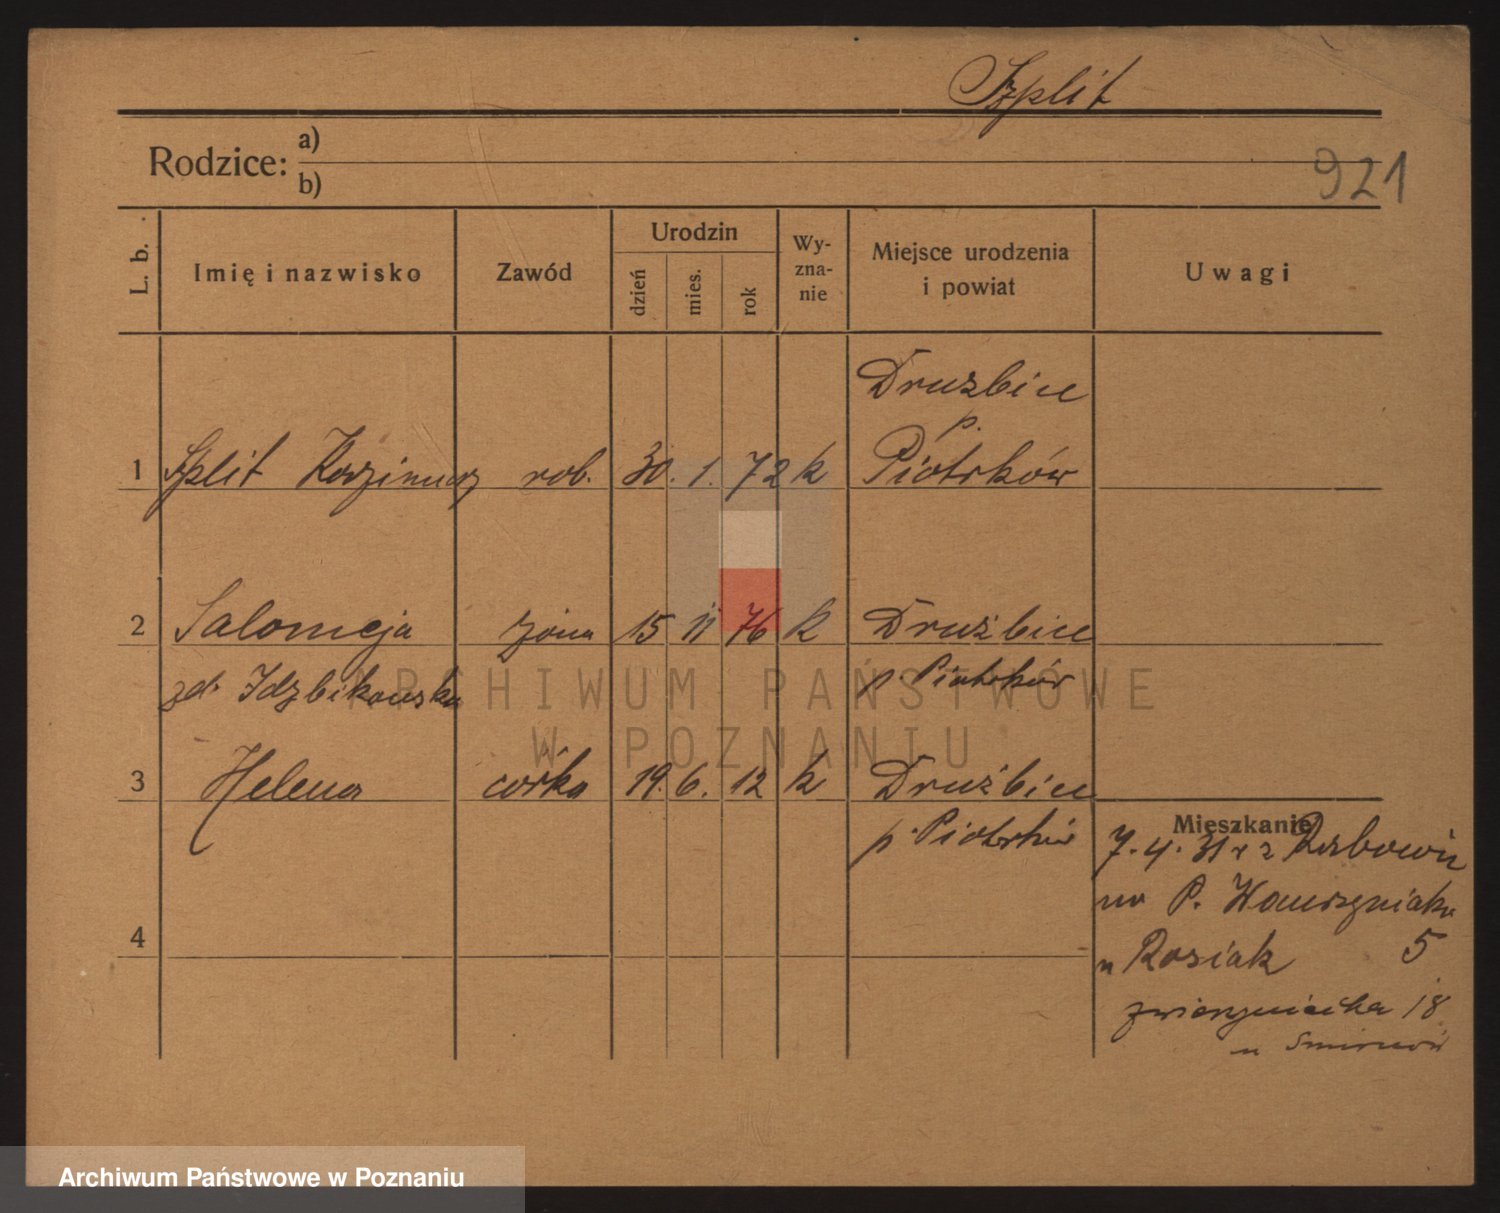 Szplit
Rodzice: a)
b)
921
L. b. Imię i nazwisko Zawód Urodzin dzień mies. rok Wyznanie Miejsce urodzenia i powiat Uwagi
Drużbice
p.
1 Szplit Kazimierz rob. 30. 1. 72 k Piotrków
2 Salomeja żona 15 11 76 k Drużbice
zd. Idzbikowska p. Piotrków
3 Helena córka 19. 6. 12 k Drużbice
p. Piotrków
Mieszkanie
7. 4. 31 z
na P. Wawrzyniaka
4
u Rosiak 5
Zwierzyniecka 18
u
ARCHIWUM PAŃSTWOWE
W POZNANIU
Archiwum Państwowe w Poznaniu